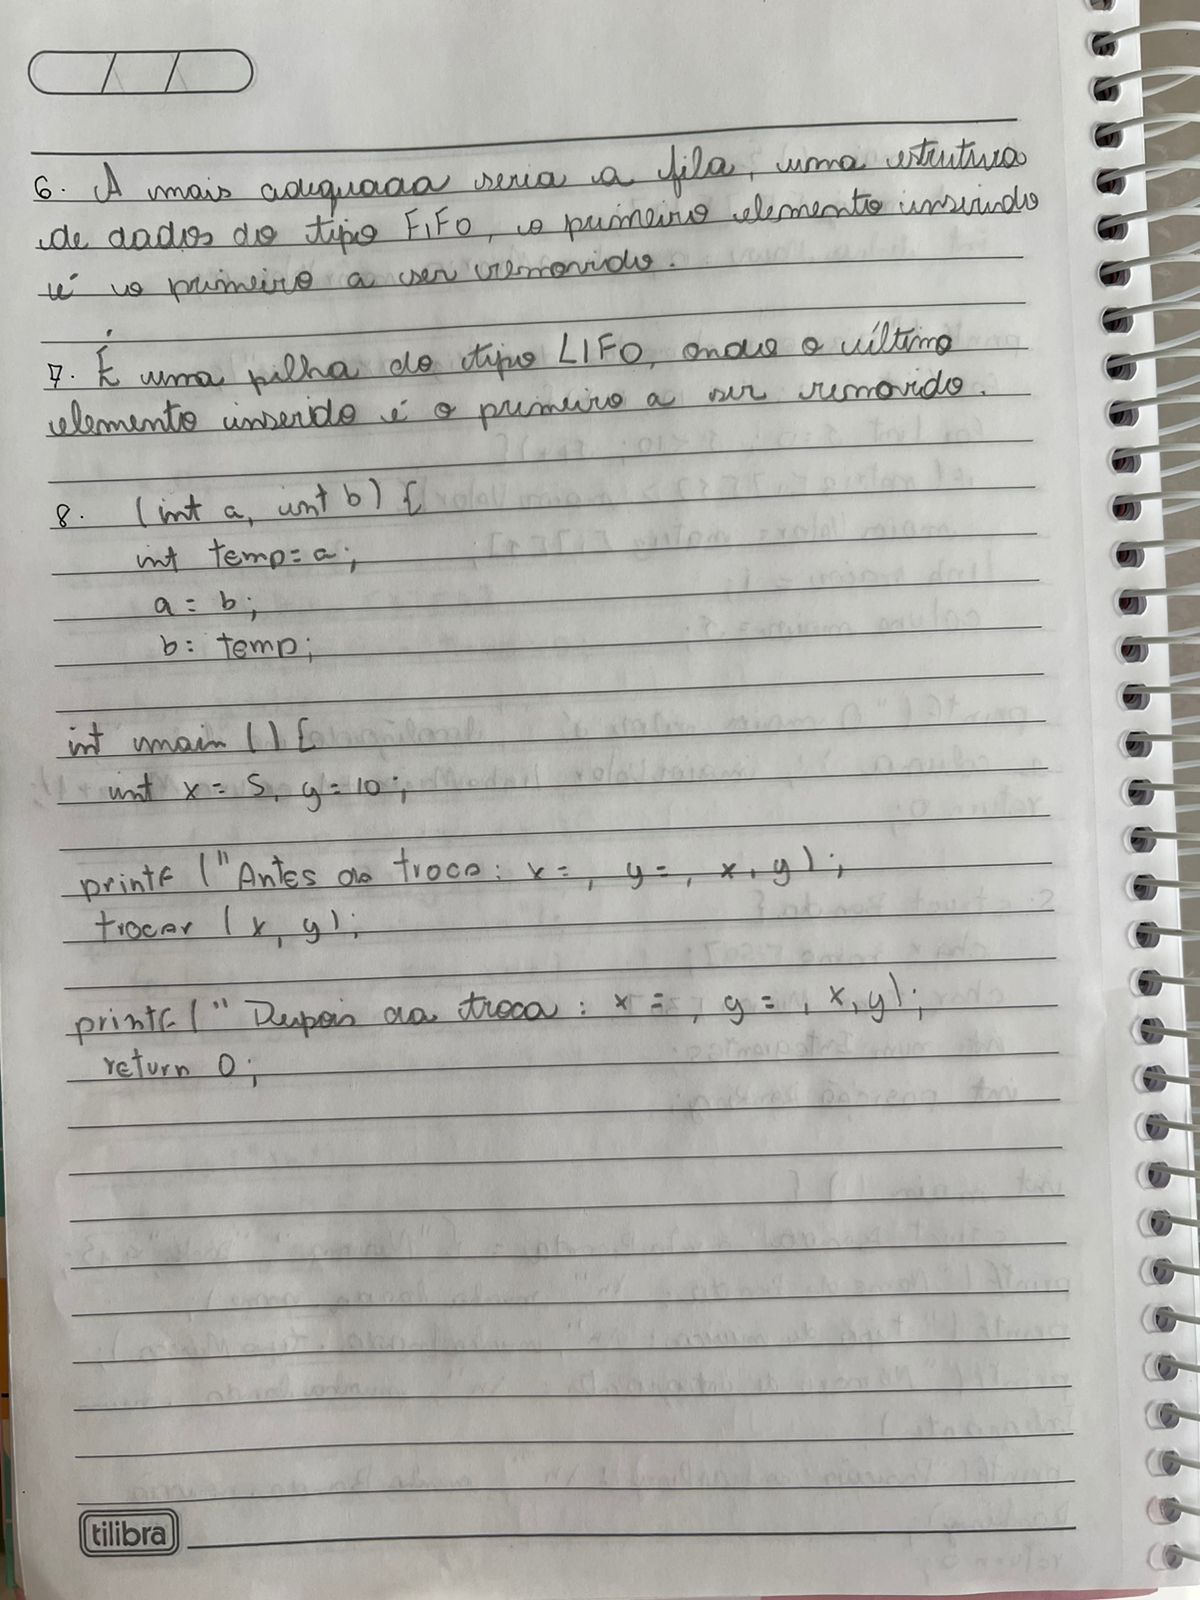 6. A mais adequada seria a fila, uma estrutura
de dados do tipo FIFO, o primeiro elemento inserido
é o primeiro a ser removido.
7. É uma pilha do tipo LIFO, onde o último
elemento inserido é o primeiro a ser removido.
8. (int a, int b) {
int temp = a;
a = b;
b = temp;
int main () {
int x = 5, y = 10;
printf ("Antes da troca: x = , y = , x, y);
trocar (x, y);
printf (" Depois da troca : x = , y = , x, y);
return 0;
tilibra